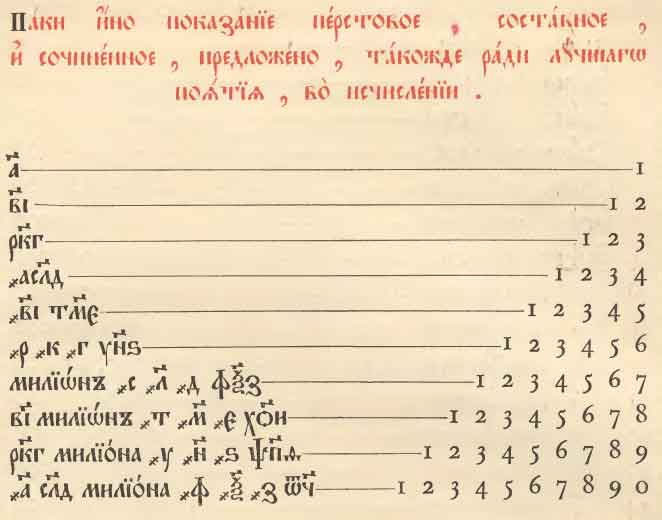 Па́ки и҆́но показа́нїе пе́рстовое , соста́вное ,
и҆ сочине́нное , предложе́но , та́кожде ра́ди лꙋ́чшагѡ
поѧ́тїѧ , во̀ исчисле́нїи .
а҃ 1
в҃і 1 2
рк҃г 1 2 3
҂асл҃д 1 2 3 4
҂в҃і тм҃є 1 2 3 4 5
҂р ҂к ҂г ун҃ѕ 1 2 3 4 5 6
милїѡ́нъ ҂с ҂л҃ ҂д фѯ҃з 1 2 3 4 5 6 7
в҃і милїѡ́нъ ҂т ҂м҃ ҂є хо҃и 1 2 3 4 5 6 7 8
рк҃г милїо́на ҂у ҂н҃ ҂ѕ ѱп҃ѳ 1 2 3 4 5 6 7 8 9
҂а҃ сл҃д милїо́на ҂ф ҂ѯ҃ ҂з ѿч҃ 1 2 3 4 5 6 7 8 9 0